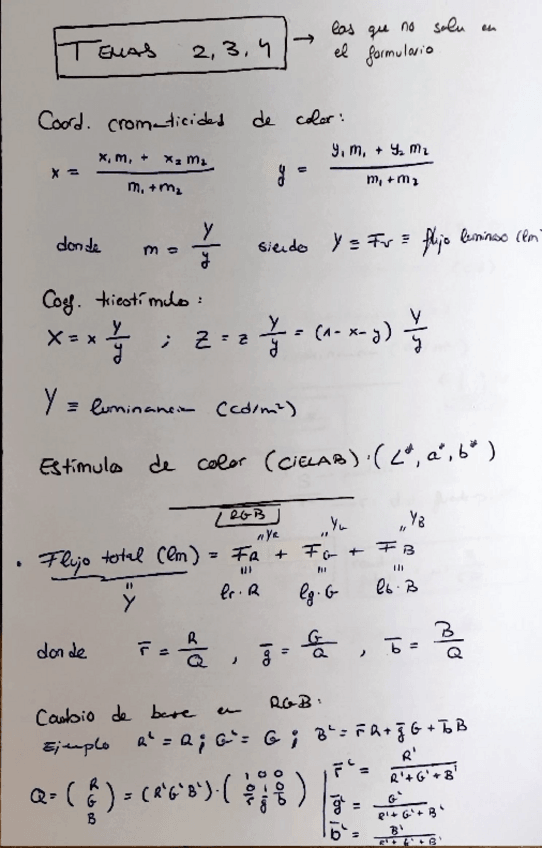 TEMAS 2, 3, 4 → las que no salen en el formulario
Coord. cromaticidad de color:
x = (x₁m₁ + x₂m₂)/(m₁+m₂)    y = (y₁m₁ + y₂m₂)/(m₁+m₂)
donde m = Y/y siendo Y ≡ Fv ≡ flujo luminoso (lm)
Coef. triestímulo:
X = x Y/y ; Z = z Y/y = (1-x-y) Y/y
Y ≡ luminancia (cd/m²)
Estímulo de color (CIELAB): (L*, a*, b*)
RGB
"YR "YG "YB
• Flujo total (lm) = FR + FG + FB
" ||| ||| |||
Y lr·R lg·G lb·B
donde r̄ = R/Q , ḡ = G/Q , b̄ = B/Q
Cambio de base en RGB:
Ejemplo R' = R ; G' = G ; B' = r̄R + ḡG + b̄B
Q = (R G B) = (R'G'B')·(1 0 0 / 0 1 0 / r̄ ḡ b̄)
r̄' = R'/(R'+G'+B')
ḡ' = G'/(R'+G'+B')
b̄' = B'/(R'+G'+B')